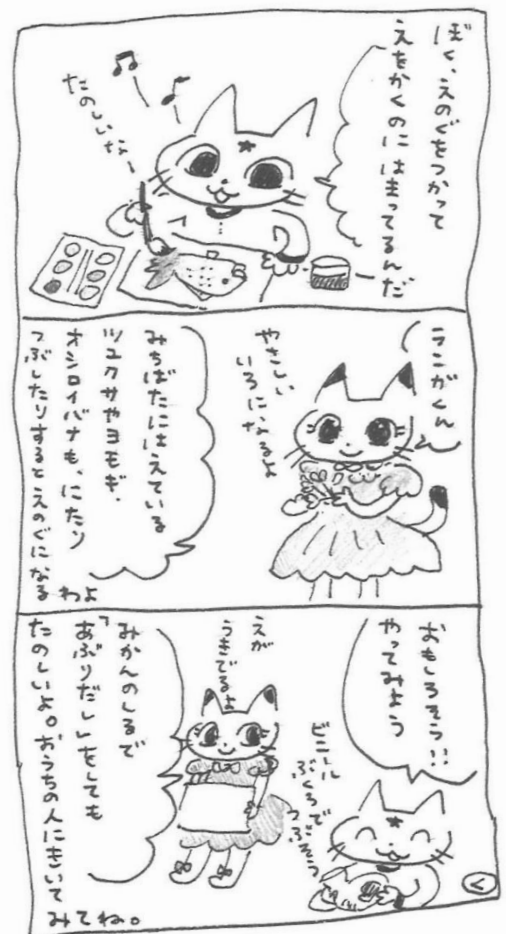 ぼく、えのぐをつかって
えをかくのにはまってるんだ
たのしいなー
ランガくん
やさしい
いろになるよ
みちばたにはえている
ツユクサやヨモギ、
オシロイバナも、にたり
つぶしたりするとえのぐになる
わよ
おもしろそう!!
やってみよう
ビニール
ぶくろで
つぶそう
えが
うきでるよ
みかんのしるで
「あぶりだし」をしても
たのしいよ。おうちの人にきいて
みてね。
く